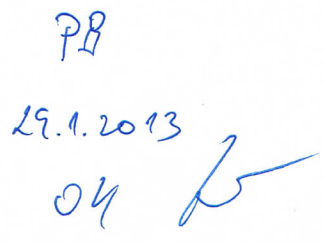 PB
29.1.2013
OK